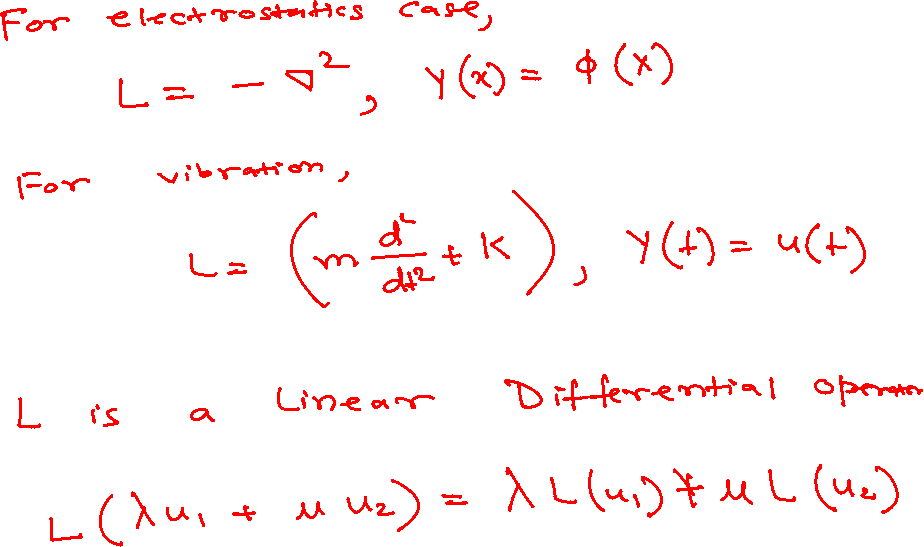 For electrostatics case,
L = - ∇², y(x) = ϕ(x)
For vibration,
L = (m d²/dt² + K), y(t) = u(t)
L is a Linear Differential operator
L(λu₁ + μu₂) = λL(u₁) + μL(u₂)